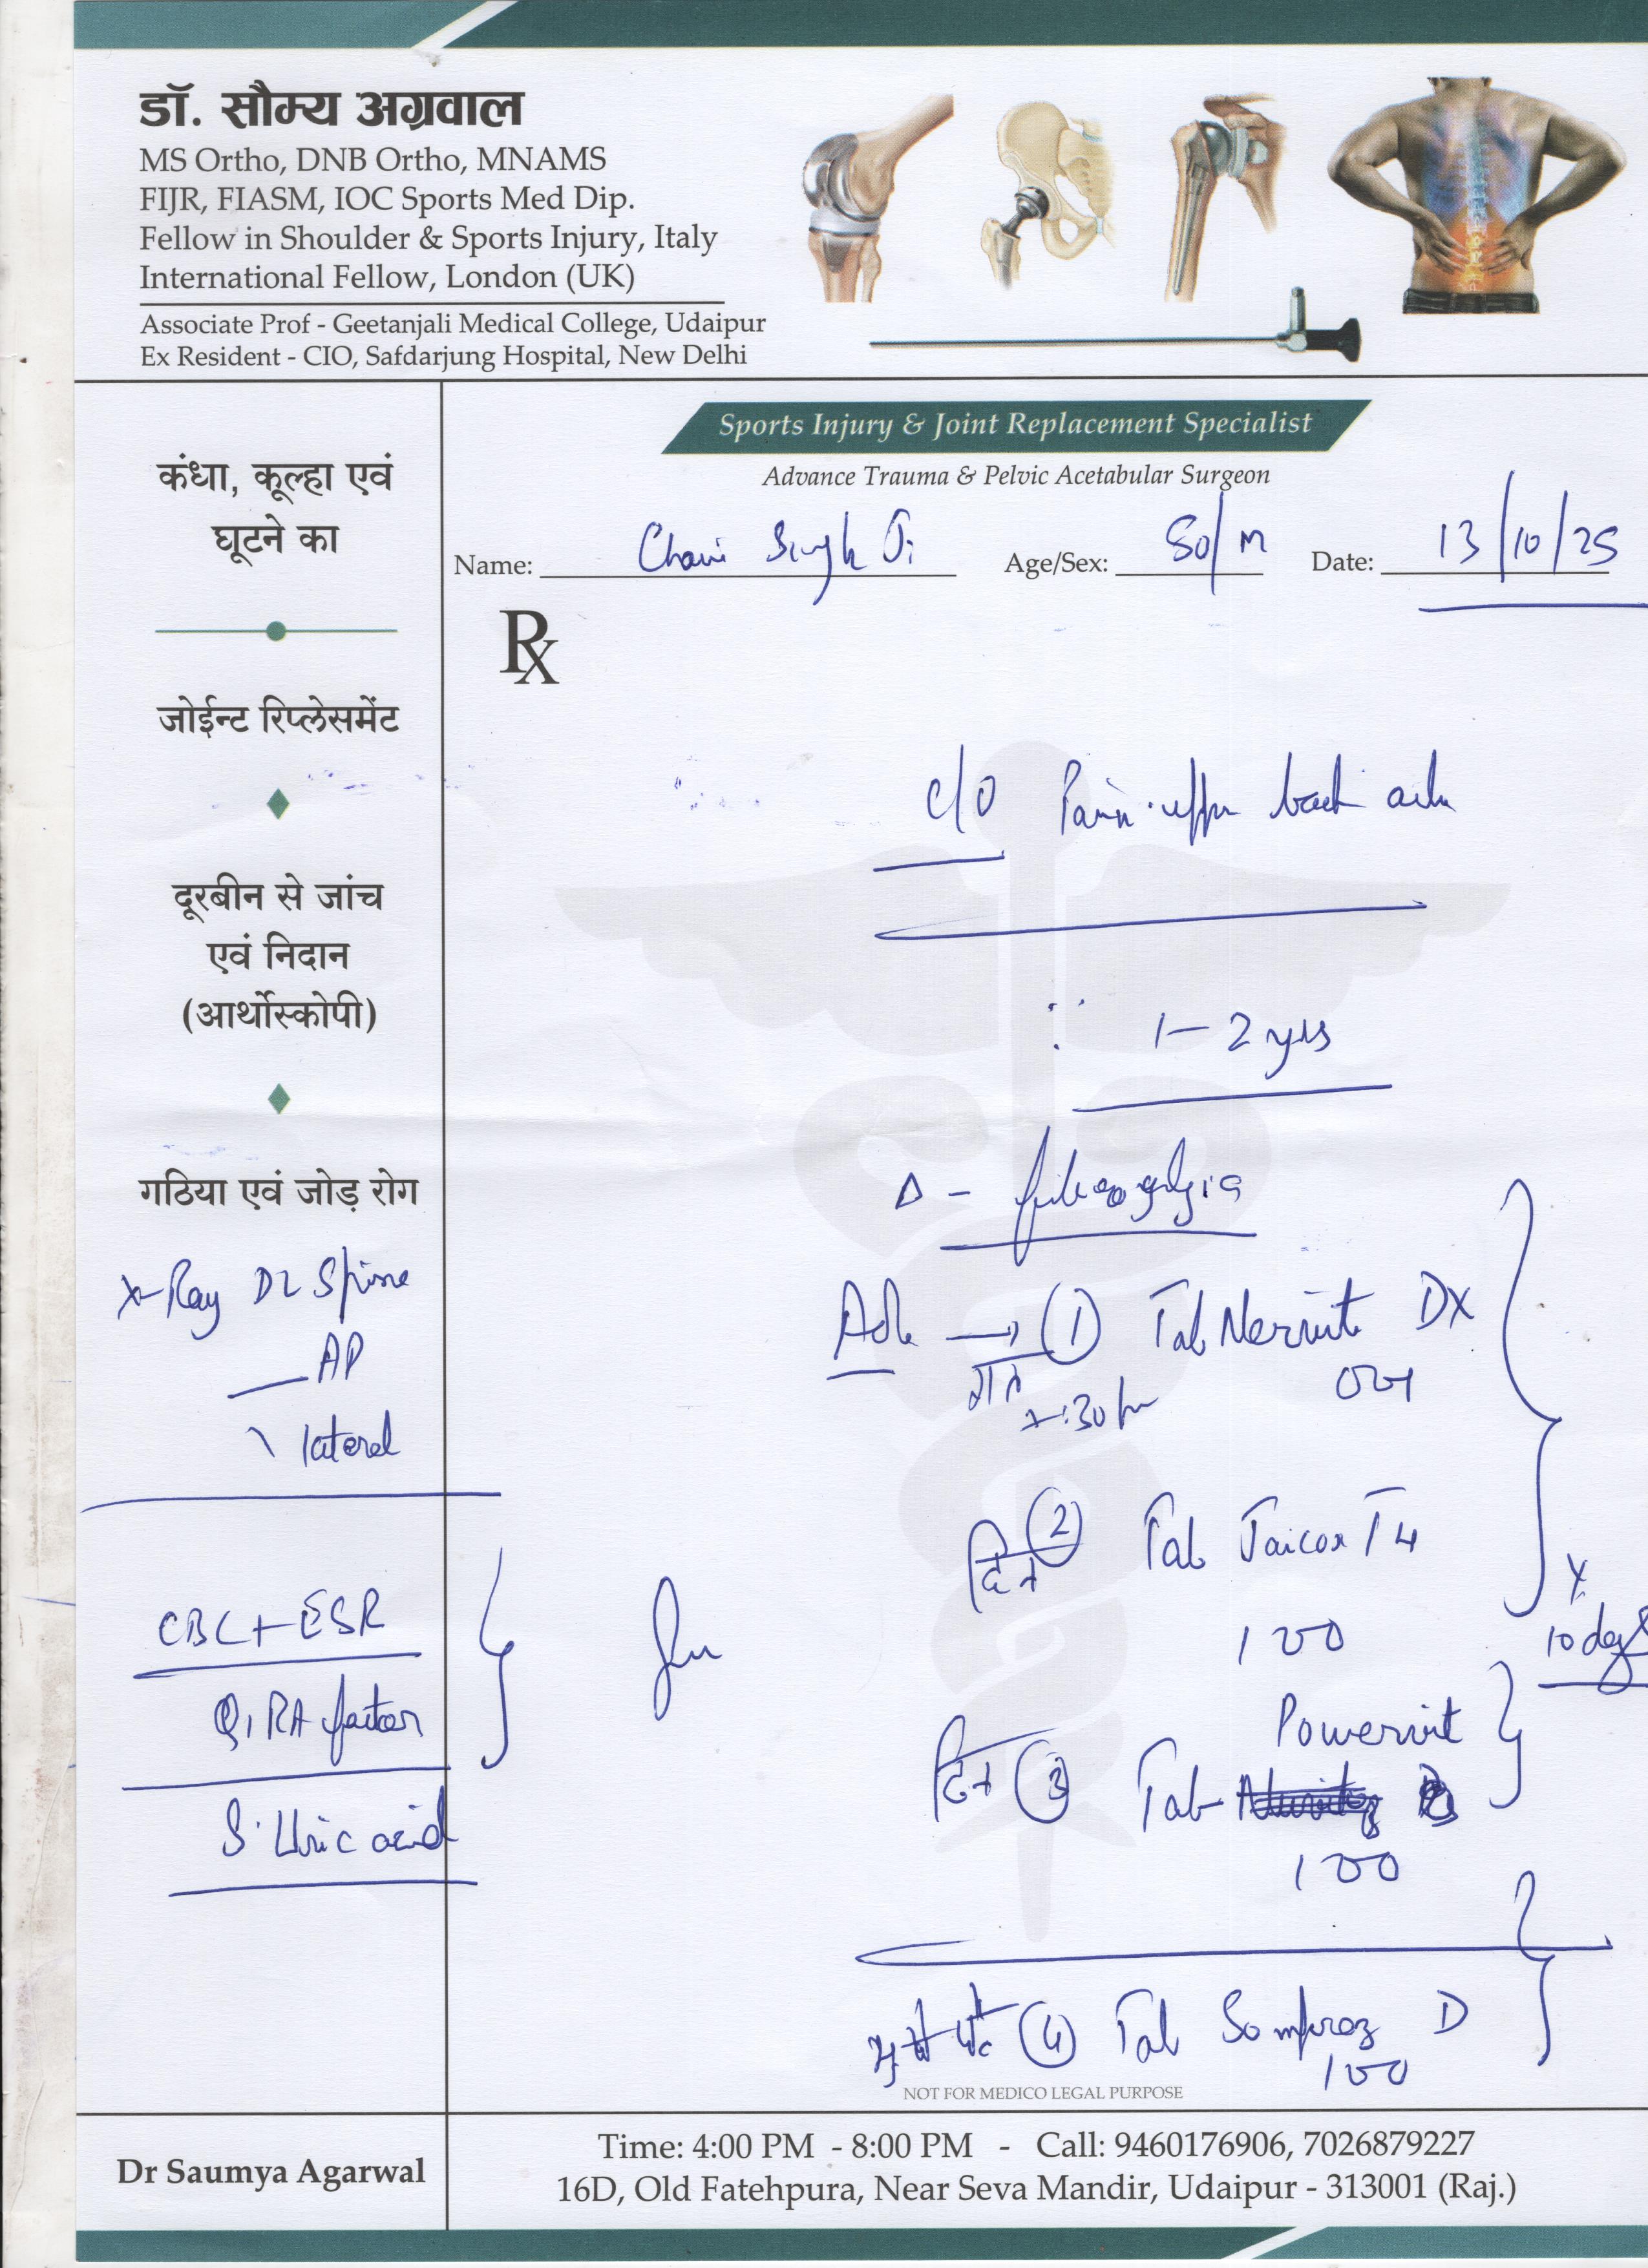 डॉ. सौम्य अग्रवाल
MS Ortho, DNB Ortho, MNAMS
FIJR, FIASM, IOC Sports Med Dip.
Fellow in Shoulder & Sports Injury, Italy
International Fellow, London (UK)
Associate Prof - Geetanjali Medical College, Udaipur
Ex Resident - CIO, Safdarjung Hospital, New Delhi
Sports Injury & Joint Replacement Specialist
Advance Trauma & Pelvic Acetabular Surgeon
Name: Singh Ji Age/Sex: 50/M Date: 13/10/25
Rx
कंधा, कूल्हा एवं
घूटने का
जोईन्ट रिप्लेसमेंट
दूरबीन से जांच
एवं निदान
(आर्थोस्कोपी)
गठिया एवं जोड़ रोग
X-Ray DL Spine
AP
lateral
CBC + ESR
RA factor
S. Uric acid
c/o Pain upper back
1-2 yrs
Δ -
① Tab DX
001
दिन ② Tab T4
100
x 10 days
Powervit
दिन ③ Tab
100
④ Tab Sompraz D
100
NOT FOR MEDICO LEGAL PURPOSE
Dr Saumya Agarwal
Time: 4:00 PM - 8:00 PM - Call: 9460176906, 7026879227
16D, Old Fatehpura, Near Seva Mandir, Udaipur - 313001 (Raj.)